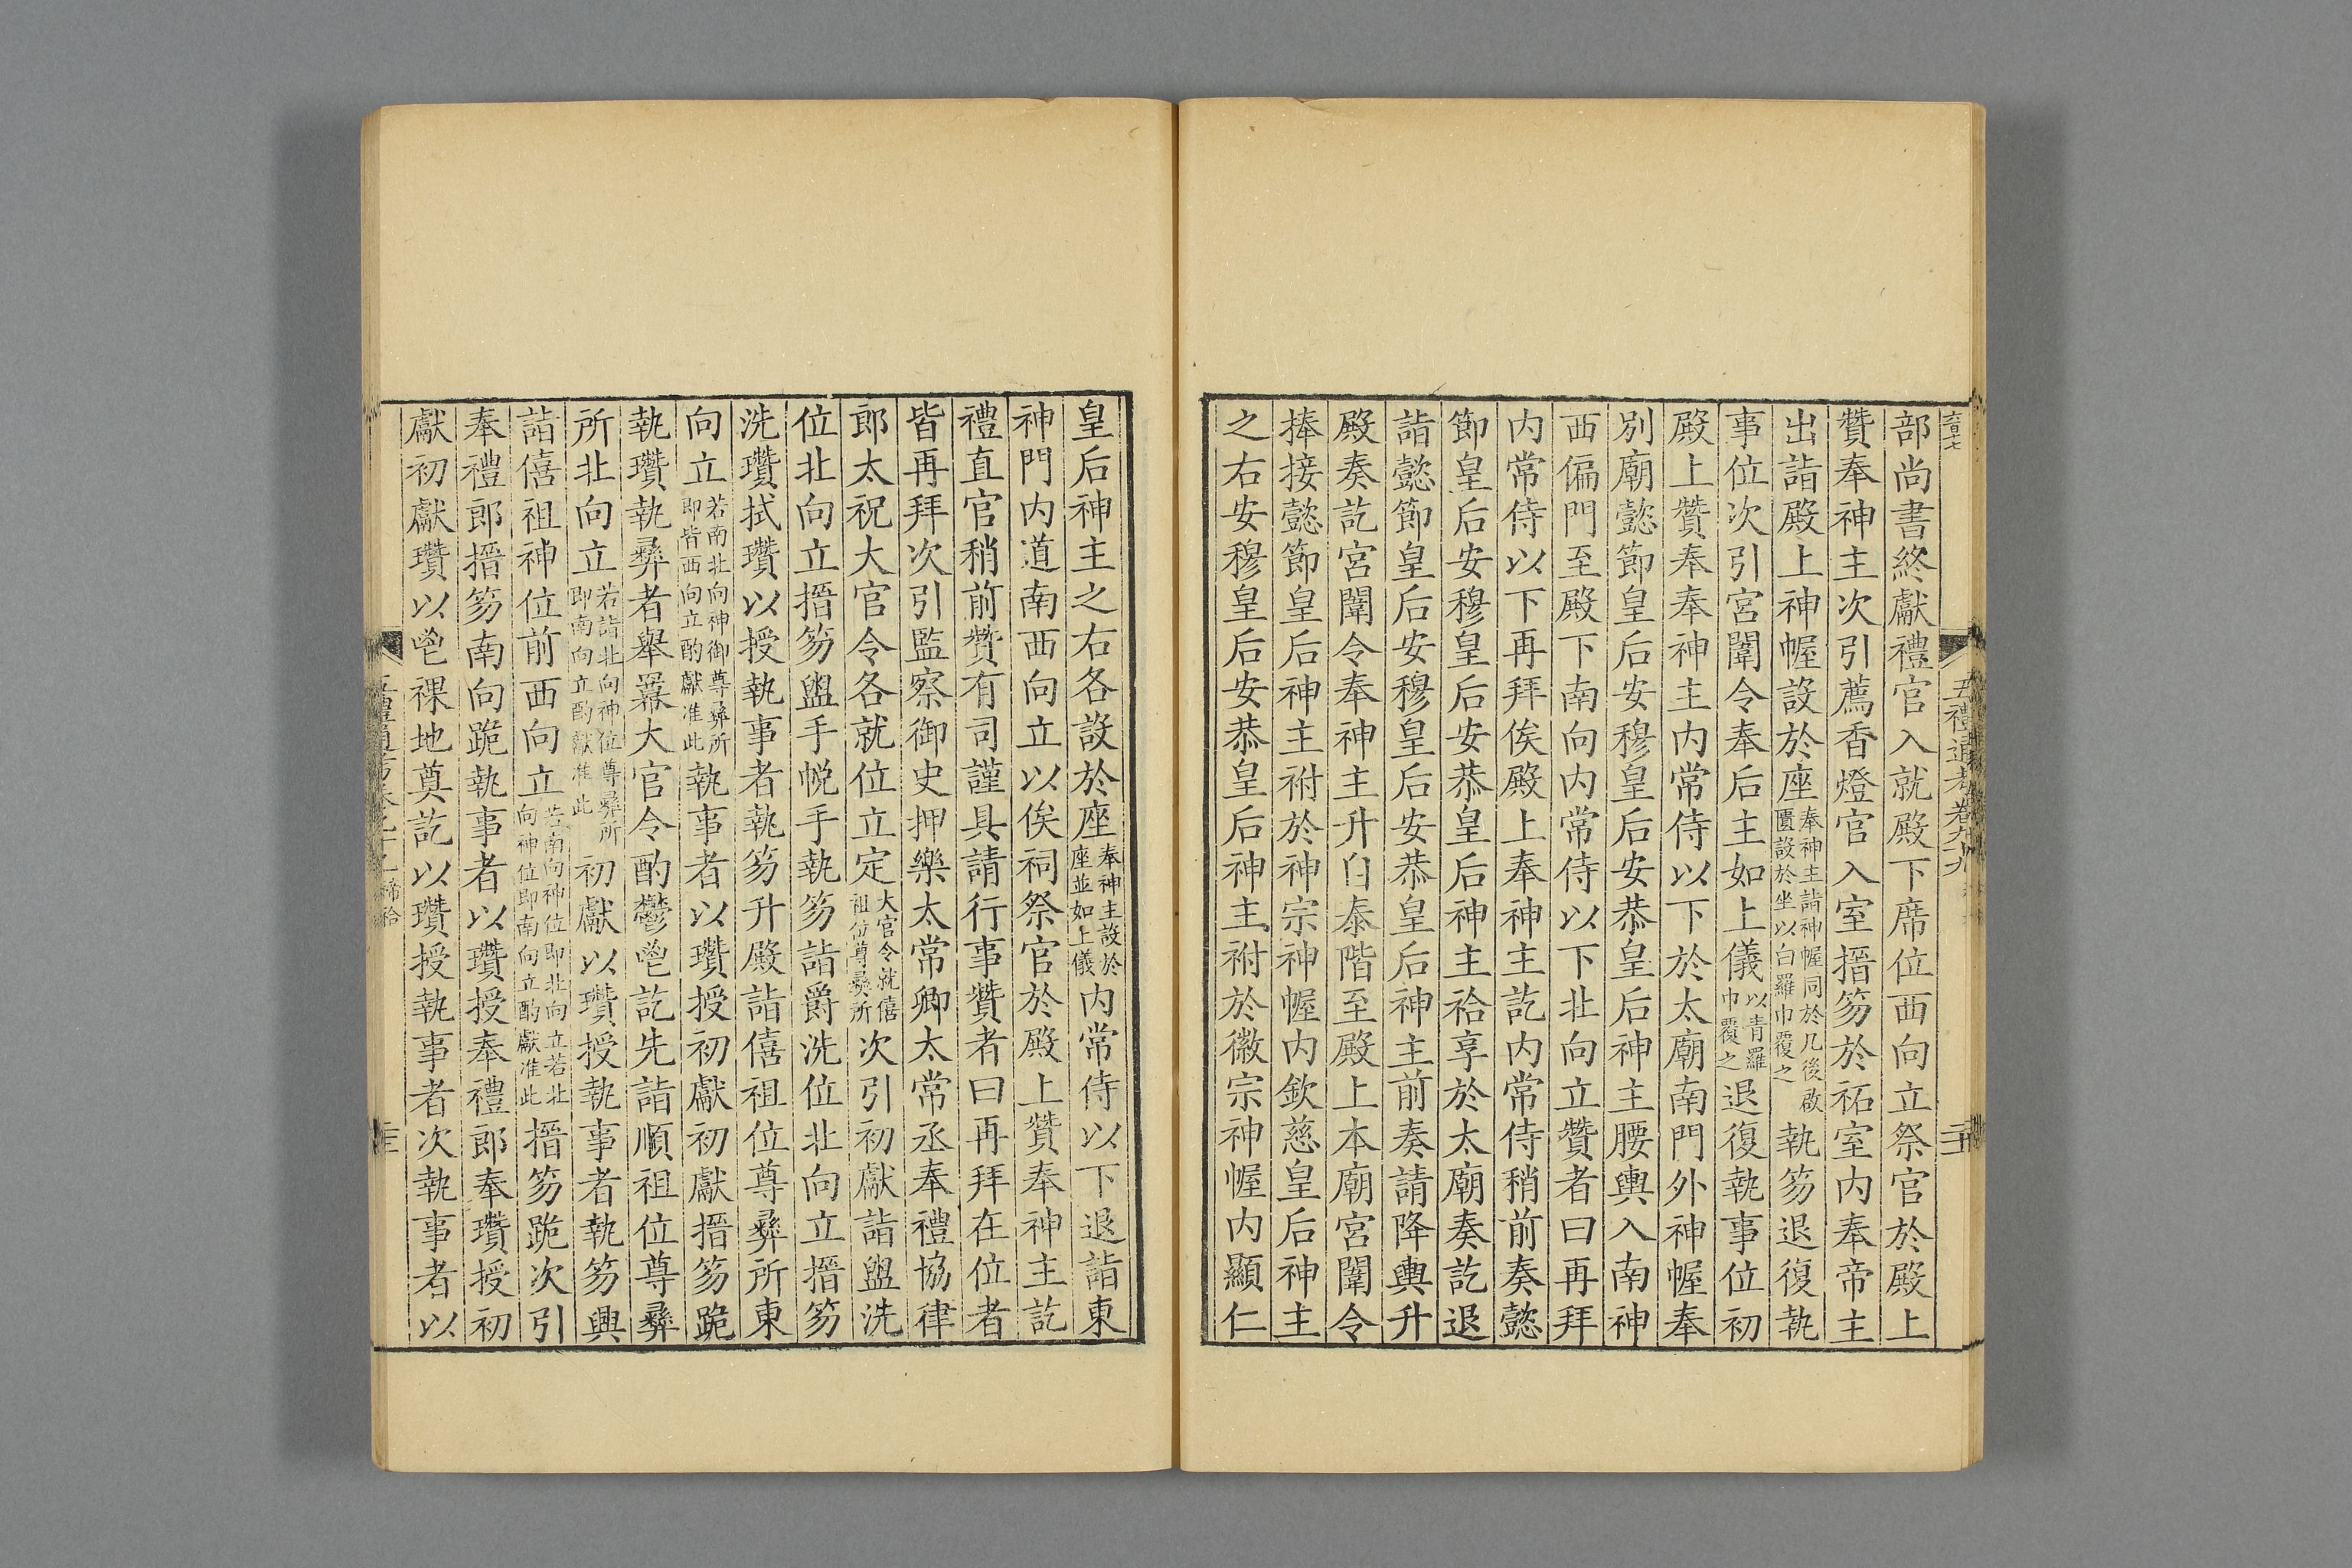 五禮通考卷九十九
部尚書終獻禮官入就殿下席位西向立祭官於殿上
贊奉神主次引薦香燈官入室搢笏於祏室內奉帝主
出詣殿上神幄設於座奉神主詣神幄同於几後啟匱設於坐以白羅巾覆之執笏退復執
事位次引宮闈令奉后主如上儀以青羅巾覆之退復執事位初
殿上贊奉奉神主內常侍以下於太廟南門外神幄奉
別廟懿節皇后安穆皇后安恭皇后神主腰輿入南神
西偏門至殿下南向內常侍以下北向立贊者曰再拜
內常侍以下再拜俟殿上奉神主訖內常侍稍前奏懿
節皇后安穆皇后安恭皇后神主祫享於太廟奏訖退
詣懿節皇后安穆皇后安恭皇后神主前奏請降輿升
殿奏訖宮闈令奉神主升自泰階至殿上本廟宮闈令
捧接懿節皇后神主祔於神宗神幄內欽慈皇后神主
之右安穆皇后安恭皇后神主祔於徽宗神幄內顯仁
皇后神主之右各設於座奉神主設於座並如上儀內常侍以下退詣東
神門內道南西向立以俟祠祭官於殿上贊奉神主訖
禮直官稍前贊有司謹具請行事贊者曰再拜在位者
皆再拜次引監察御史押樂太常卿太常丞奉禮協律
郎太祝大官令各就位立定大官令就僖祖位尊彝所次引初獻詣盥洗
位北向立搢笏盥手帨手執笏詣爵洗位北向立搢笏
洗瓚拭瓚以授執事者執笏升殿詣僖祖位尊彝所東
向立若南北向神御尊彝所即皆西向立酌獻准此執事者以瓚授初獻初獻搢笏跪
執瓚執彝者舉羃大官令酌鬱鬯訖先詣順祖位尊彝
所北向立若詣北向神位尊彝所即南向立酌獻准此初獻以瓚授執事者執笏興
詣僖祖神位前西向立若南向神位即北向立若北向神位即南向立酌獻准此搢笏跪次引
奉禮郎搢笏南向跪執事者以瓚授奉禮郎奉瓚授初
獻初獻瓚以鬯祼地奠訖以瓚授執事者次執事者以